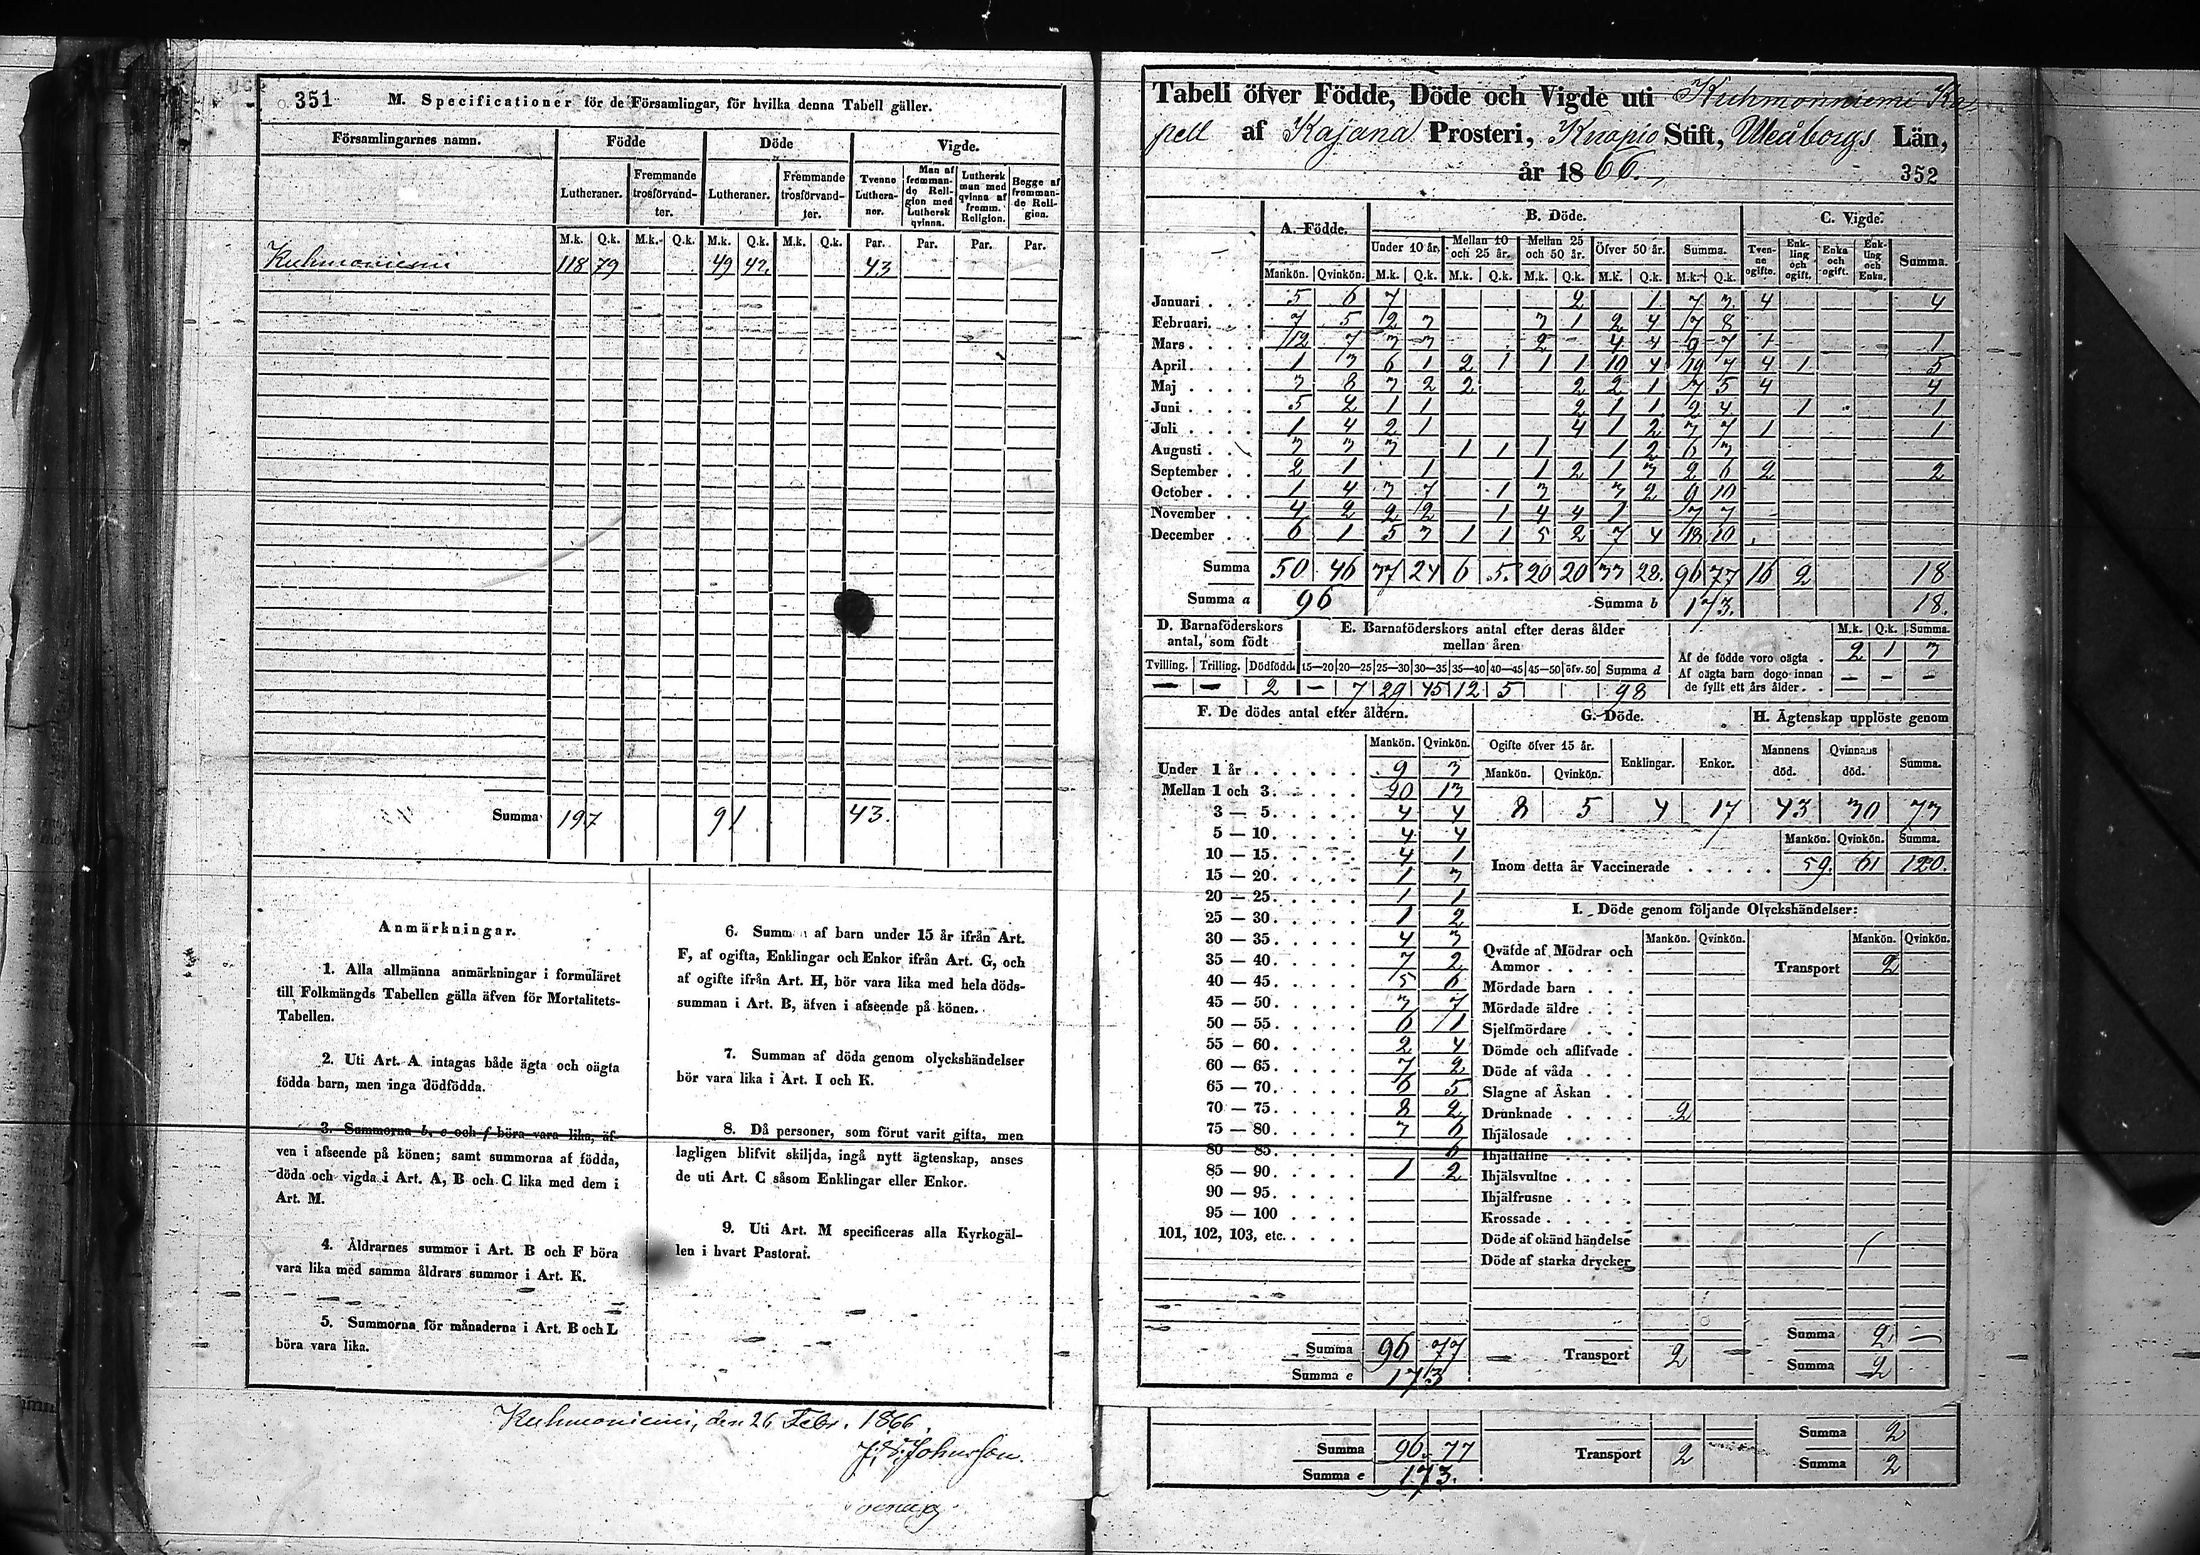 351 M. Specificationer för de Församlingar, för hvilka denna Tabell gäller.
Församlingarnes namn. Födde Döde Vigde.
Lutheraner. Fremmande trosförvandter. Lutheraner. Fremmande trosförvandter. Tvenne Lutheraner. Man af fremmande Religion med Luthersk qvinna. Luthersk man med qvinna af fremm. Religion. Begge af fremmande Religion.
M.k. Q.k. M.k. Q.k. M.k. Q.k. M.k. Q.k. Par. Par. Par. Par.
Kuhmoniemi 118 79 49 42 43
Summa 197 91 43.
Anmärkningar.
1. Alla allmänna anmärkningar i formuläret
till Folkmängds Tabellen gälla äfven för Mortalitets-
Tabellen.
2. Uti Art. A intagas både ägta och oägta
födda barn, men inga dödfödda.
3. Summorna b, e och f böra vara lika, äf-
ven i afseende på könen; samt summorna af födda,
döda och vigda i Art. A, B och C lika med dem i
Art. M.
4. Åldrarnes summor i Art. B och F böra
vara lika med samma åldrars summor i Art. K.
5. Summorna för månaderna i Art. B och L
böra vara lika.
6. Summan af barn under 15 år ifrån Art.
F, af ogifta, Enklingar och Enkor ifrån Art. G, och
af ogifte ifrån Art. H, bör vara lika med hela döds-
summan i Art. B, äfven i afseende på könen.
7. Summan af döda genom olyckshändelser
bör vara lika i Art. I och K.
8. Då personer, som förut varit gifta, men
lagligen blifvit skiljda, ingå nytt ägtenskap, anses
de uti Art. C såsom Enklingar eller Enkor.
9. Uti Art. M specificeras alla Kyrkogäl-
len i hvart Pastorat.
Kuhmoniemi, den 26 Febr. 1866.
Johnsson.
Tabell öfver Födde, Döde och Vigde uti Kuhmoniemi Ka-
pell af Kajana Prosteri, Kuopio Stift, Uleåborgs Län,
år 1866. 352
A. Födde. B. Döde. C. Vigde.
Under 10 år. Mellan 10 och 25 år. Mellan 25 och 50 år. Öfver 50 år. Summa. Tvenne ogifte. Enkling och ogift. Enka och ogift. Enkling och Enka. Summa.
Mankön. Qvinkön. M.k. Q.k. M.k. Q.k. M.k. Q.k. M.k. Q.k. M.k. Q.k.
Januari 5 6 7 2 1 7 3 4 4
Februari 7 5 2 3 3 1 2 4 7 8
Mars 12 7 3 3 2 4 4 9 7 1 1
April 1 3 6 1 2 1 1 1 10 4 19 7 4 1 5
Maj 3 8 3 2 2 2 2 1 7 5 4 4
Juni 5 2 1 1 2 1 1 2 4 1 1
Juli 1 4 2 1 4 1 2 3 7 1 1
Augusti 3 3 3 1 1 1 1 2 6 3
September 2 1 1 1 2 1 3 2 6 2 2
October 1 4 3 7 1 3 3 2 9 10
November 4 2 2 2 1 4 4 1 7 7
December 6 1 5 3 1 1 5 2 7 4 18 10
Summa 50 46 37 24 6 5. 20 20 33 28. 96 77 16 2 18
Summa a 96 Summa b 173. 18.
D. Barnaföderskors antal, som födt E. Barnaföderskors antal efter deras ålder mellan åren M.k. Q.k. Summa.
Tvilling. Trilling. Dödfödd. 15—20 20—25 25—30 30—35 35—40 40—45 45—50 öfv. 50 Summa d
— — 2 — 7 29 45 12 5 98
Af de födde voro oägta 2 1 3
Af oägta barn dogo innan de fyllt ett års ålder — — —
F. De dödes antal efter åldern. G. Döde. H. Ägtenskap upplöste genom
Mankön. Qvinkön. Ogifte öfver 15 år. Enklingar. Enkor. Mannens död. Qvinnans död. Summa.
Mankön. Qvinkön.
8 5 4 17 43 30 73
Mankön. Qvinkön. Summa.
Inom detta år Vaccinerade 59. 61 120.
Under 1 år 9 3
Mellan 1 och 3 20 13
3 — 5 4 4
5 — 10 4 4
10 — 15 4 1
15 — 20 1 3
20 — 25 1 1
25 — 30 1 2
30 — 35 4 3
35 — 40 7 2
40 — 45 5 6
45 — 50 3 7
50 — 55 6 1
55 — 60 2 4
60 — 65 7 2
65 — 70 6 5
70 — 75 8 2
75 — 80 3 6
80 — 85 6
85 — 90 1 2
90 — 95
95 — 100
101, 102, 103, etc.
Summa 96 77
Summa e 173
I. Döde genom följande Olyckshändelser:
Mankön. Qvinkön. Mankön. Qvinkön.
Qväfde af Mödrar och Ammor Transport 2
Mördade barn
Mördade äldre
Sjelfmördare
Dömde och aflifvade
Döde af våda
Slagne af Åskan
Drunknade 2
Ihjälosade
Ihjälfallne
Ihjälsvultne
Ihjälfrusne
Krossade
Döde af okänd händelse
Döde af starka drycker
Summa 2 —
Transport 2 Summa 2
Summa 96 77 Transport 2 Summa 2
Summa e 173. Summa 2